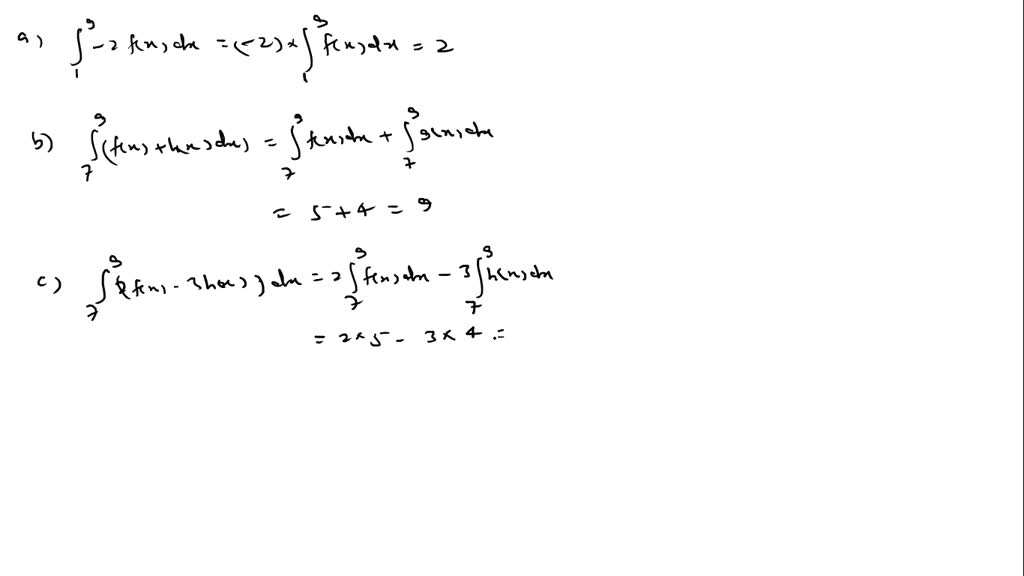 a) ∫₁⁹ -2 f(x) dx = (-2) × ∫₁⁹ f(x) dx = 2
b) ∫₇⁹ (f(x) + h(x) dx) = ∫₇⁹ f(x) dx + ∫₇⁹ g(x) dx
= 5 + 4 = 9
c) ∫₇⁹ (2f(x) - 3h(x)) dx = 2 ∫₇⁹ f(x) dx - 3 ∫₇⁹ h(x) dx
= 2 × 5 - 3 × 4 =